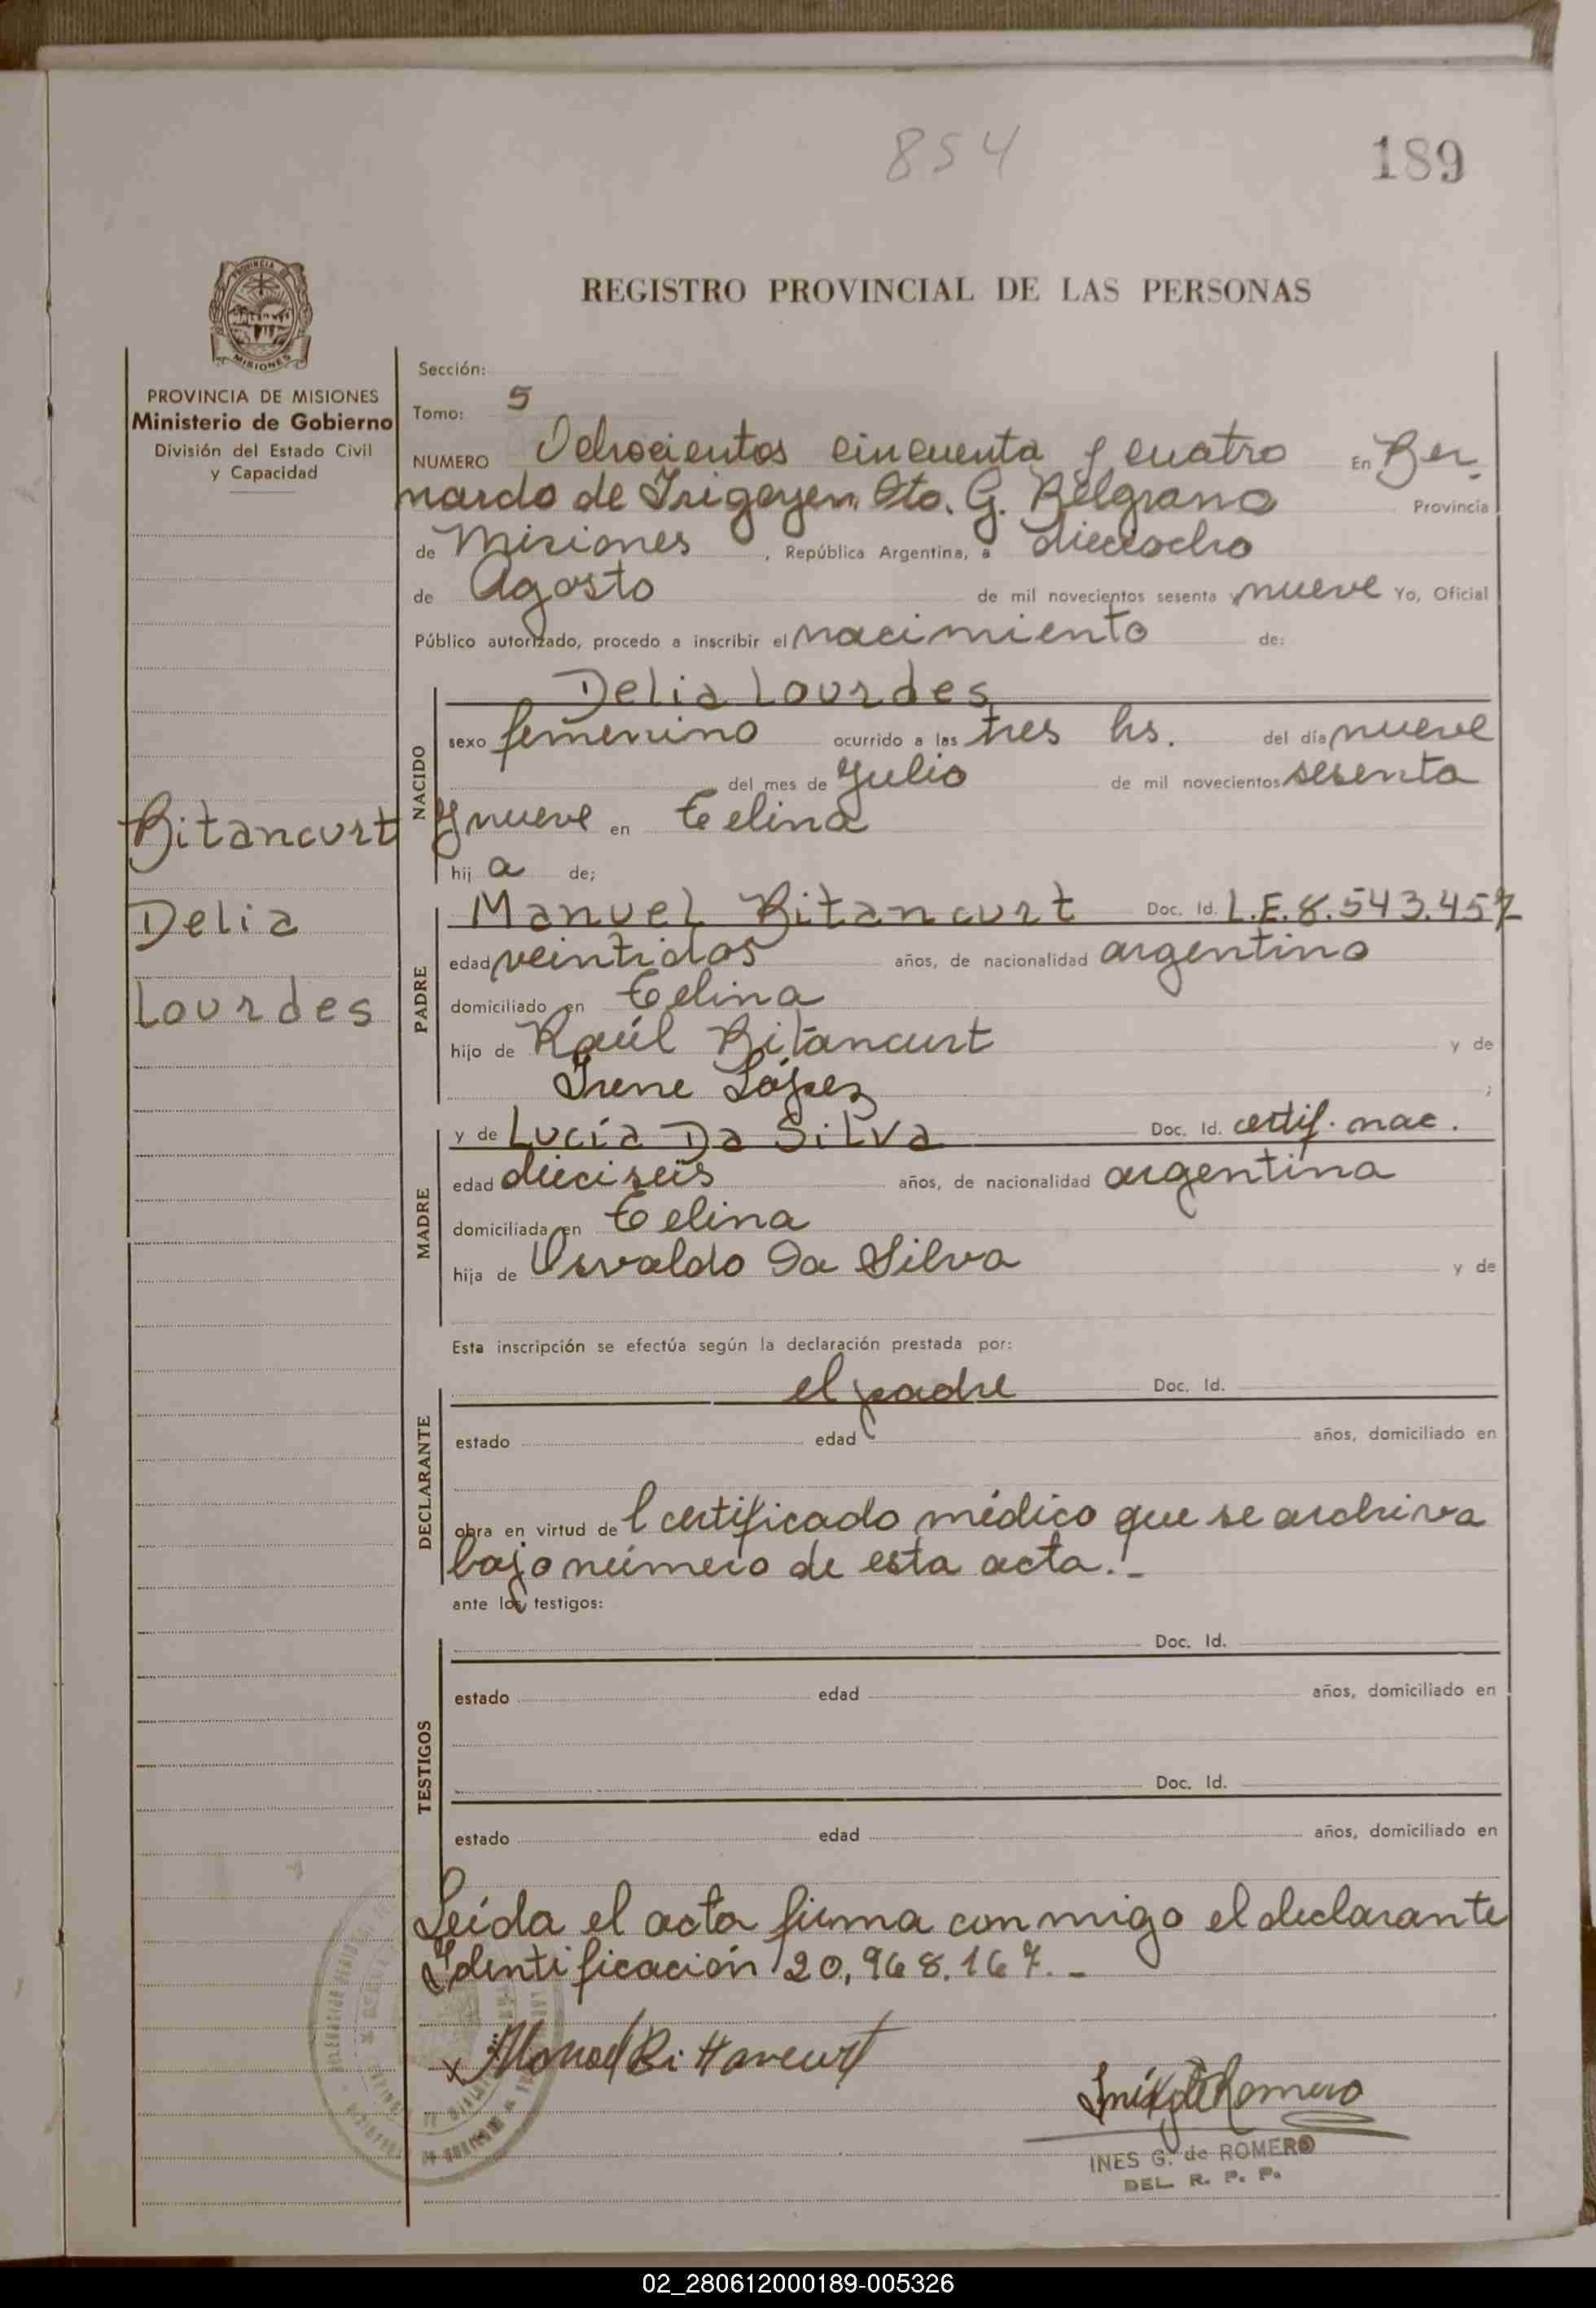 854
189
REGISTRO PROVINCIAL DE LAS PERSONAS
MISIONES
PROVINCIA DE MISIONES
Ministerio de Gobierno
División del Estado Civil
y Capacidad
Sección:
Tomo: 5
NUMERO Ochocientos cincuenta y cuatro En Ber-
nardo de Irigoyen Dto. G. Belgrano Provincia
de Misiones, República Argentina, a dieciocho
de Agosto de mil novecientos sesenta y nueve Yo, Oficial
Público autorizado, procedo a inscribir el nacimiento de:
Bitancurt
Delia
Lourdes
NACIDO
Delia Lourdes
sexo femenino ocurrido a las tres hs. del día nueve
del mes de Julio de mil novecientos sesenta
y nueve en Celina
hij a de;
PADRE
Manuel Bitancurt Doc. Id. L.E. 8.543.457
edad veintidos años, de nacionalidad argentino
domiciliado en Celina
hijo de Raúl Bitancurt y de
Irene López ;
MADRE
y de Lucía Da Silva Doc. Id. certif. nac.
edad dieciseis años, de nacionalidad argentina
domiciliada en Celina
hija de Osvaldo Da Silva y de
Esta inscripción se efectúa según la declaración prestada por:
DECLARANTE
el padre Doc. Id.
estado edad años, domiciliado en
obra en virtud de l certificado médico que se archiva
bajo número de esta acta.-
ante los testigos:
TESTIGOS
Doc. Id.
estado edad años, domiciliado en
Doc. Id.
estado edad años, domiciliado en
Leída el acta firma conmigo el declarante
Identificación 20,968.167.-
x Manuel Bittancurt
Inés G de Romero
INES G. de ROMERO
DEL. R. P. P.
02_280612000189-005326